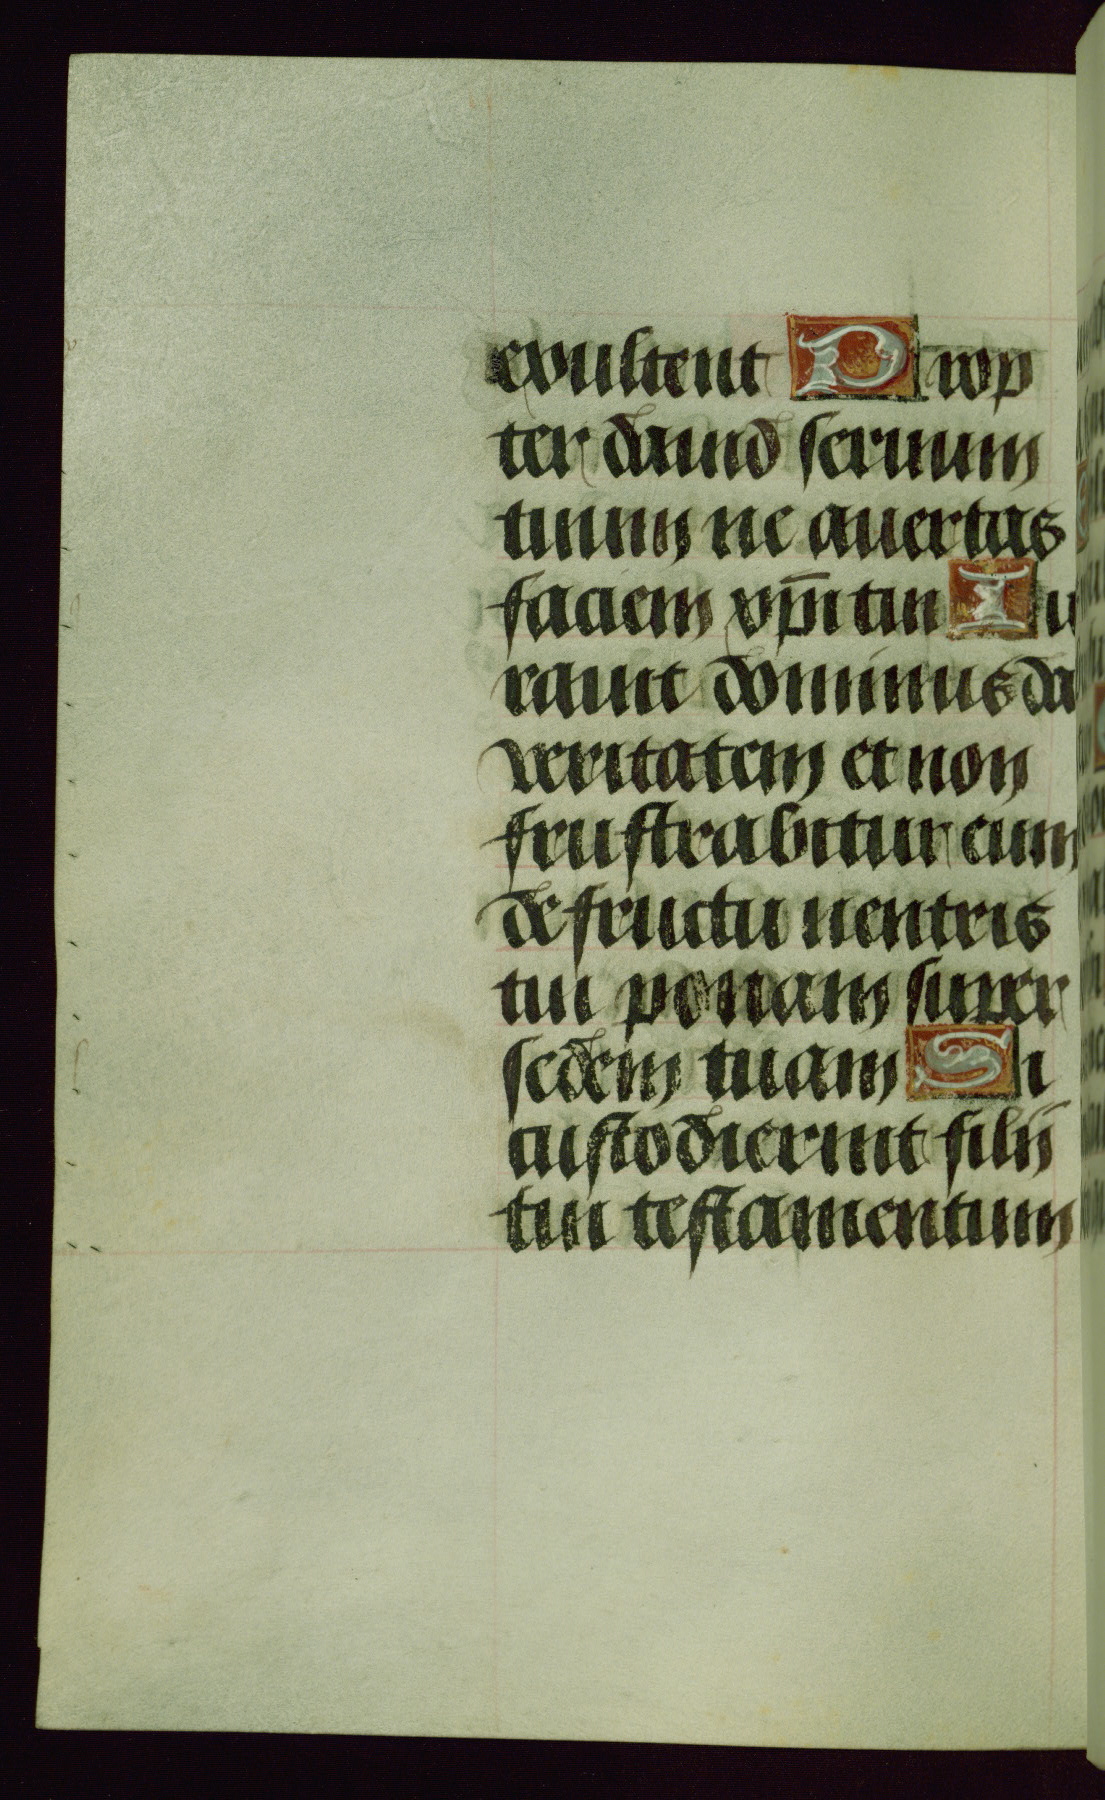 exultent Prop
ter dauid seruum
tuum ne auertas
faciem xp̄i tui Iu
rauit dominus da
veritatem et non
frustrabitur eum
de fructu uentris
tui ponam super
sedem tuam Si
custodierint filij
tui testamentum